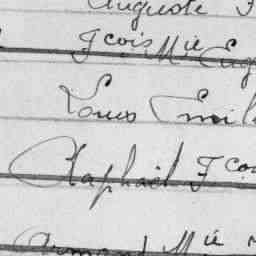 Auguste F
Fcois Mie Eug
Louis Emil
Raphaël Fcois
Armand Mie